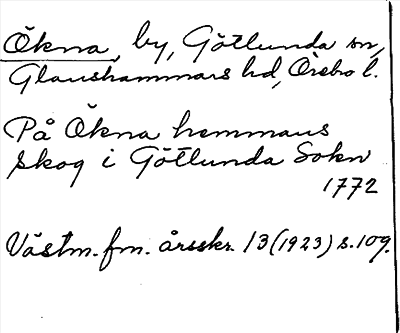 Ökna, by, Götlunda sn,
Glanshammars hd, Örebro l.
På Ökna hemmans
skog i Götlunda Sokn
1772
Västm. fm. årsskr. 13 (1923) s. 109.